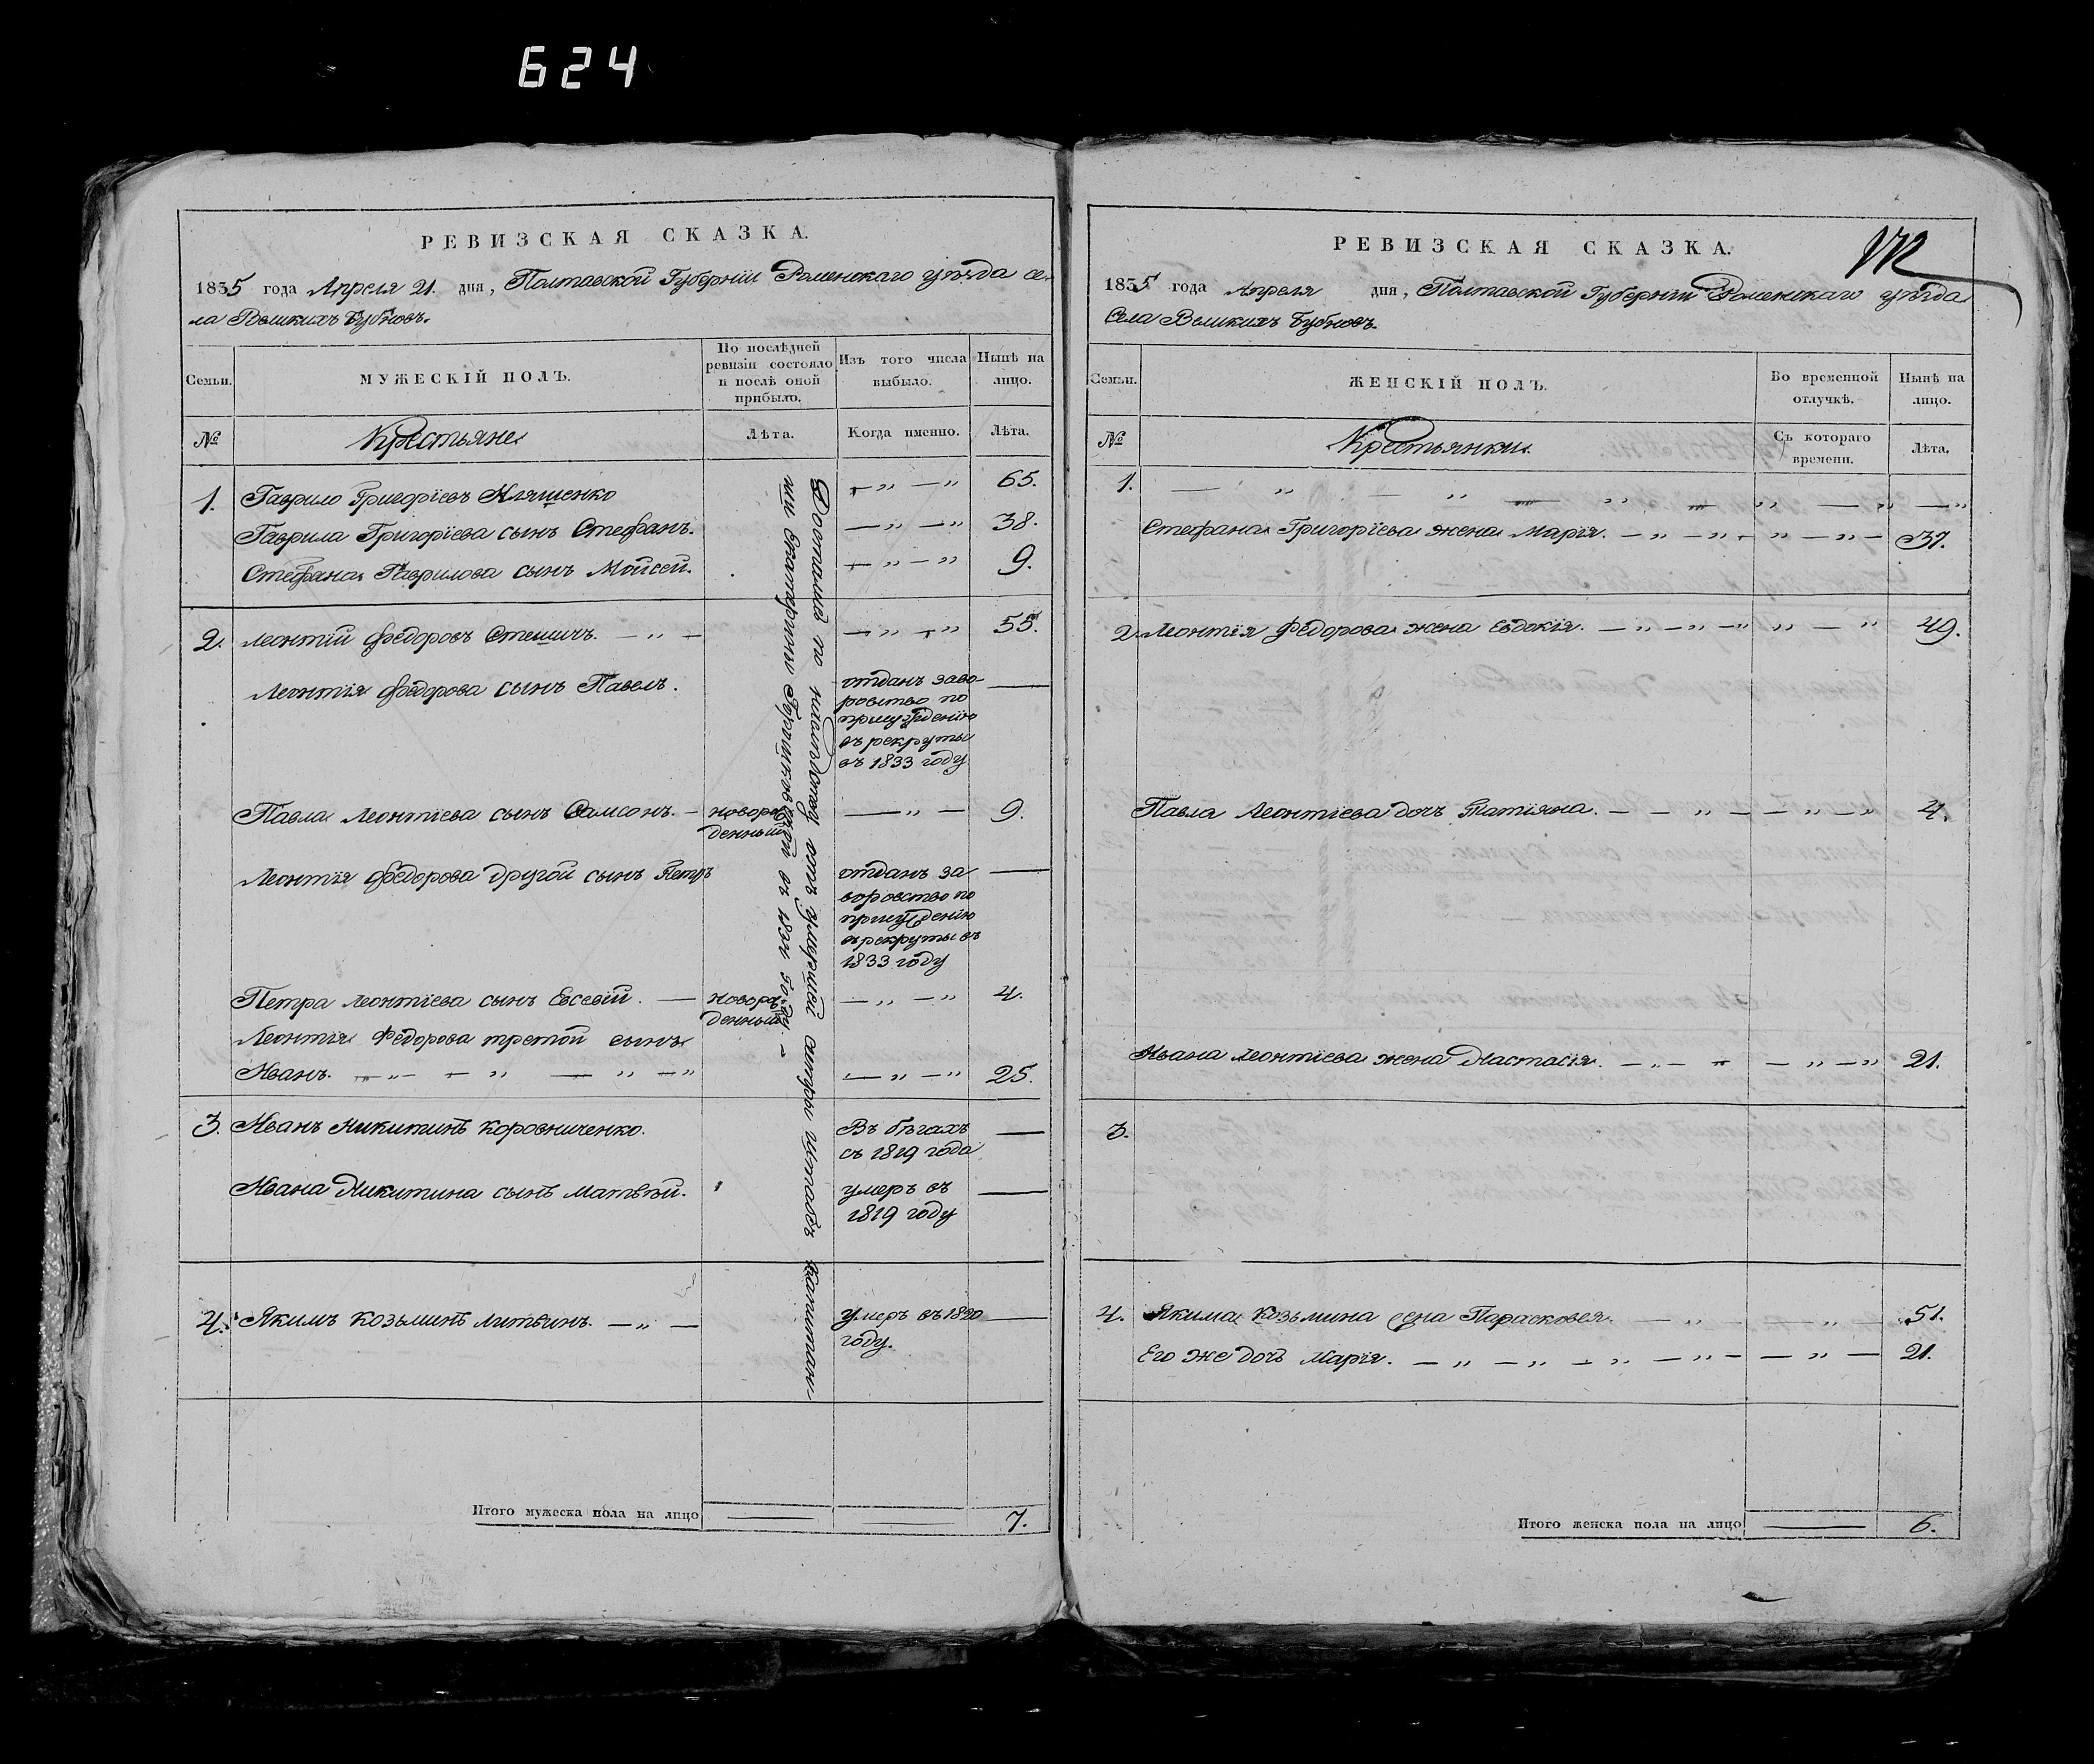 624
РЕВИЗСКАЯ СКАЗКА.
1835 года Апреля 21. дня, Полтавской Губернїи Роменскаго уѣзда се-
ла Великихъ Бубновъ.
Семьи.
МУЖЕСКІЙ ПОЛЪ.
По послѣдней ревизіи состояло и послѣ оной прибыло.
Изъ того числа выбыло.
Нынѣ на лицо.
№
Крестьяне
Лѣта.
Когда именно.
Лѣта.
1. Гаврило Григорїевъ Кляшенко — „ — „ 65.
Гаврила Григорїева сынъ Стефанъ. — „ — „ 38.
Стефана Гаврилова сынъ Мойсей. — „ — „ 9.
2. Леонтїй Федоровъ Стецичъ. — „ — — „ — „ 55.
Леонтїя Федорова сынъ Павелъ. —
отданъ заво
ровство по
присуждению
въ рекруты
въ 1833 году
Павла Леонтїева сынъ Самсонъ. — новорож — „ — 9.
денный
Леонтїя Федорова другой сынъ Петръ —
отданъ за
воровство по
присуждению
въ рекруты въ
1833 году
Петра Леонтїева сынъ Евсевїй. — новорож — „ — „ 4.
денный
Леонтїя Федорова третой сынъ
Иванъ. — „ — — „ — „ — „ — „ — „ 25.
3. Иванъ Никитинъ Коровниченко. Въ бѣгахъ —
съ 1819 года
Ивана Никитина сынъ Матвѣй. умеръ въ —
1819 году
4. Якимъ Козьминъ Литвинъ. — „ — умеръ въ 1820 —
году.
Итого мужеска пола на лицо 7.
Достались по наслѣдству отъ умершей сестры штабсъ Капитан
ши Екатерины в 1834 году
РЕВИЗСКАЯ СКАЗКА.
1835 года Апреля дня, Полтавской Губернїи Роменскаго уѣзда
Села Великихъ Бубновъ.
Семьи.
ЖЕНСКІЙ ПОЛЪ.
Во временной отлучкѣ.
Нынѣ на лицо.
№
Крестьянки.
Съ котораго времени.
Лѣта.
1. — „ — „ — „ — „ — „ — „
Стефана Григорїева жена Марїя. — „ — „ — „ — „ — 37.
2. Леонтїя Федорова жена Евдокїя. — „ — „ — „ „ — „ 49.
Павла Леонтїева дочь Татїяна. — — „ — — „ — „ 4.
Ивана Леонтїева жена Настасїя. — „ — — „ — „ 21.
3.
4. Якима Козьмина жена Парасковея. — „ — — „ — 51.
Его же дочь Марїя. — „ — „ — „ — „ — — „ — 21.
Итого женска пола на лицо 6.